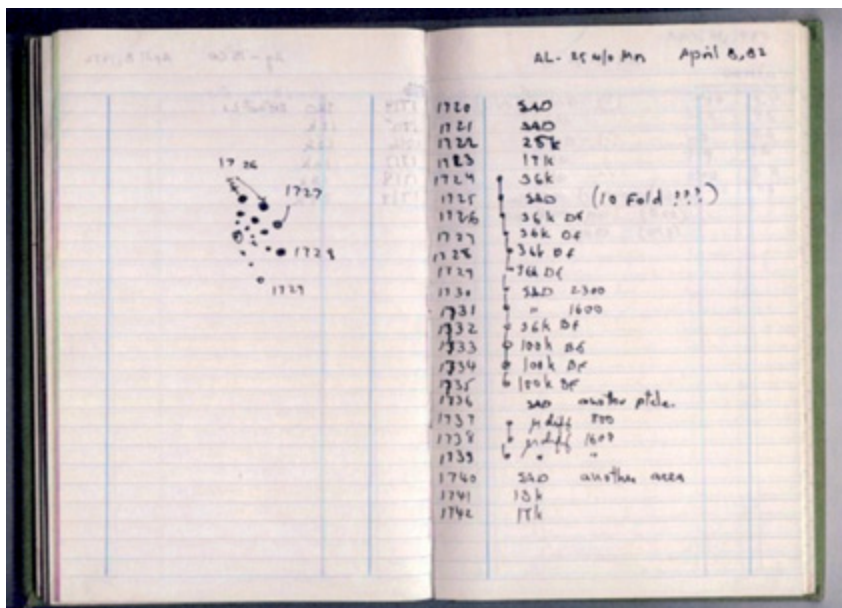 1726
1727
1728
1729
AL- 25 w/o Mn April 8, 82
1720 SAD
1721 SAD
1722 25k
1723 17k
1724 36k
1725 SAD (10 Fold ???)
1726 36k DF
1727 36k DF
1728 36k DF
1729 36k DF
1730 SAD 2300
1731 " 1600
1732 36k BF
1733 100k BF
1734 100k DF
1735 100k DF
1736 SAD another ptcle.
1737 μ diff 800
1738 μ diff 1600
1739 " "
1740 SAD another area
1741 13k
1742 17k